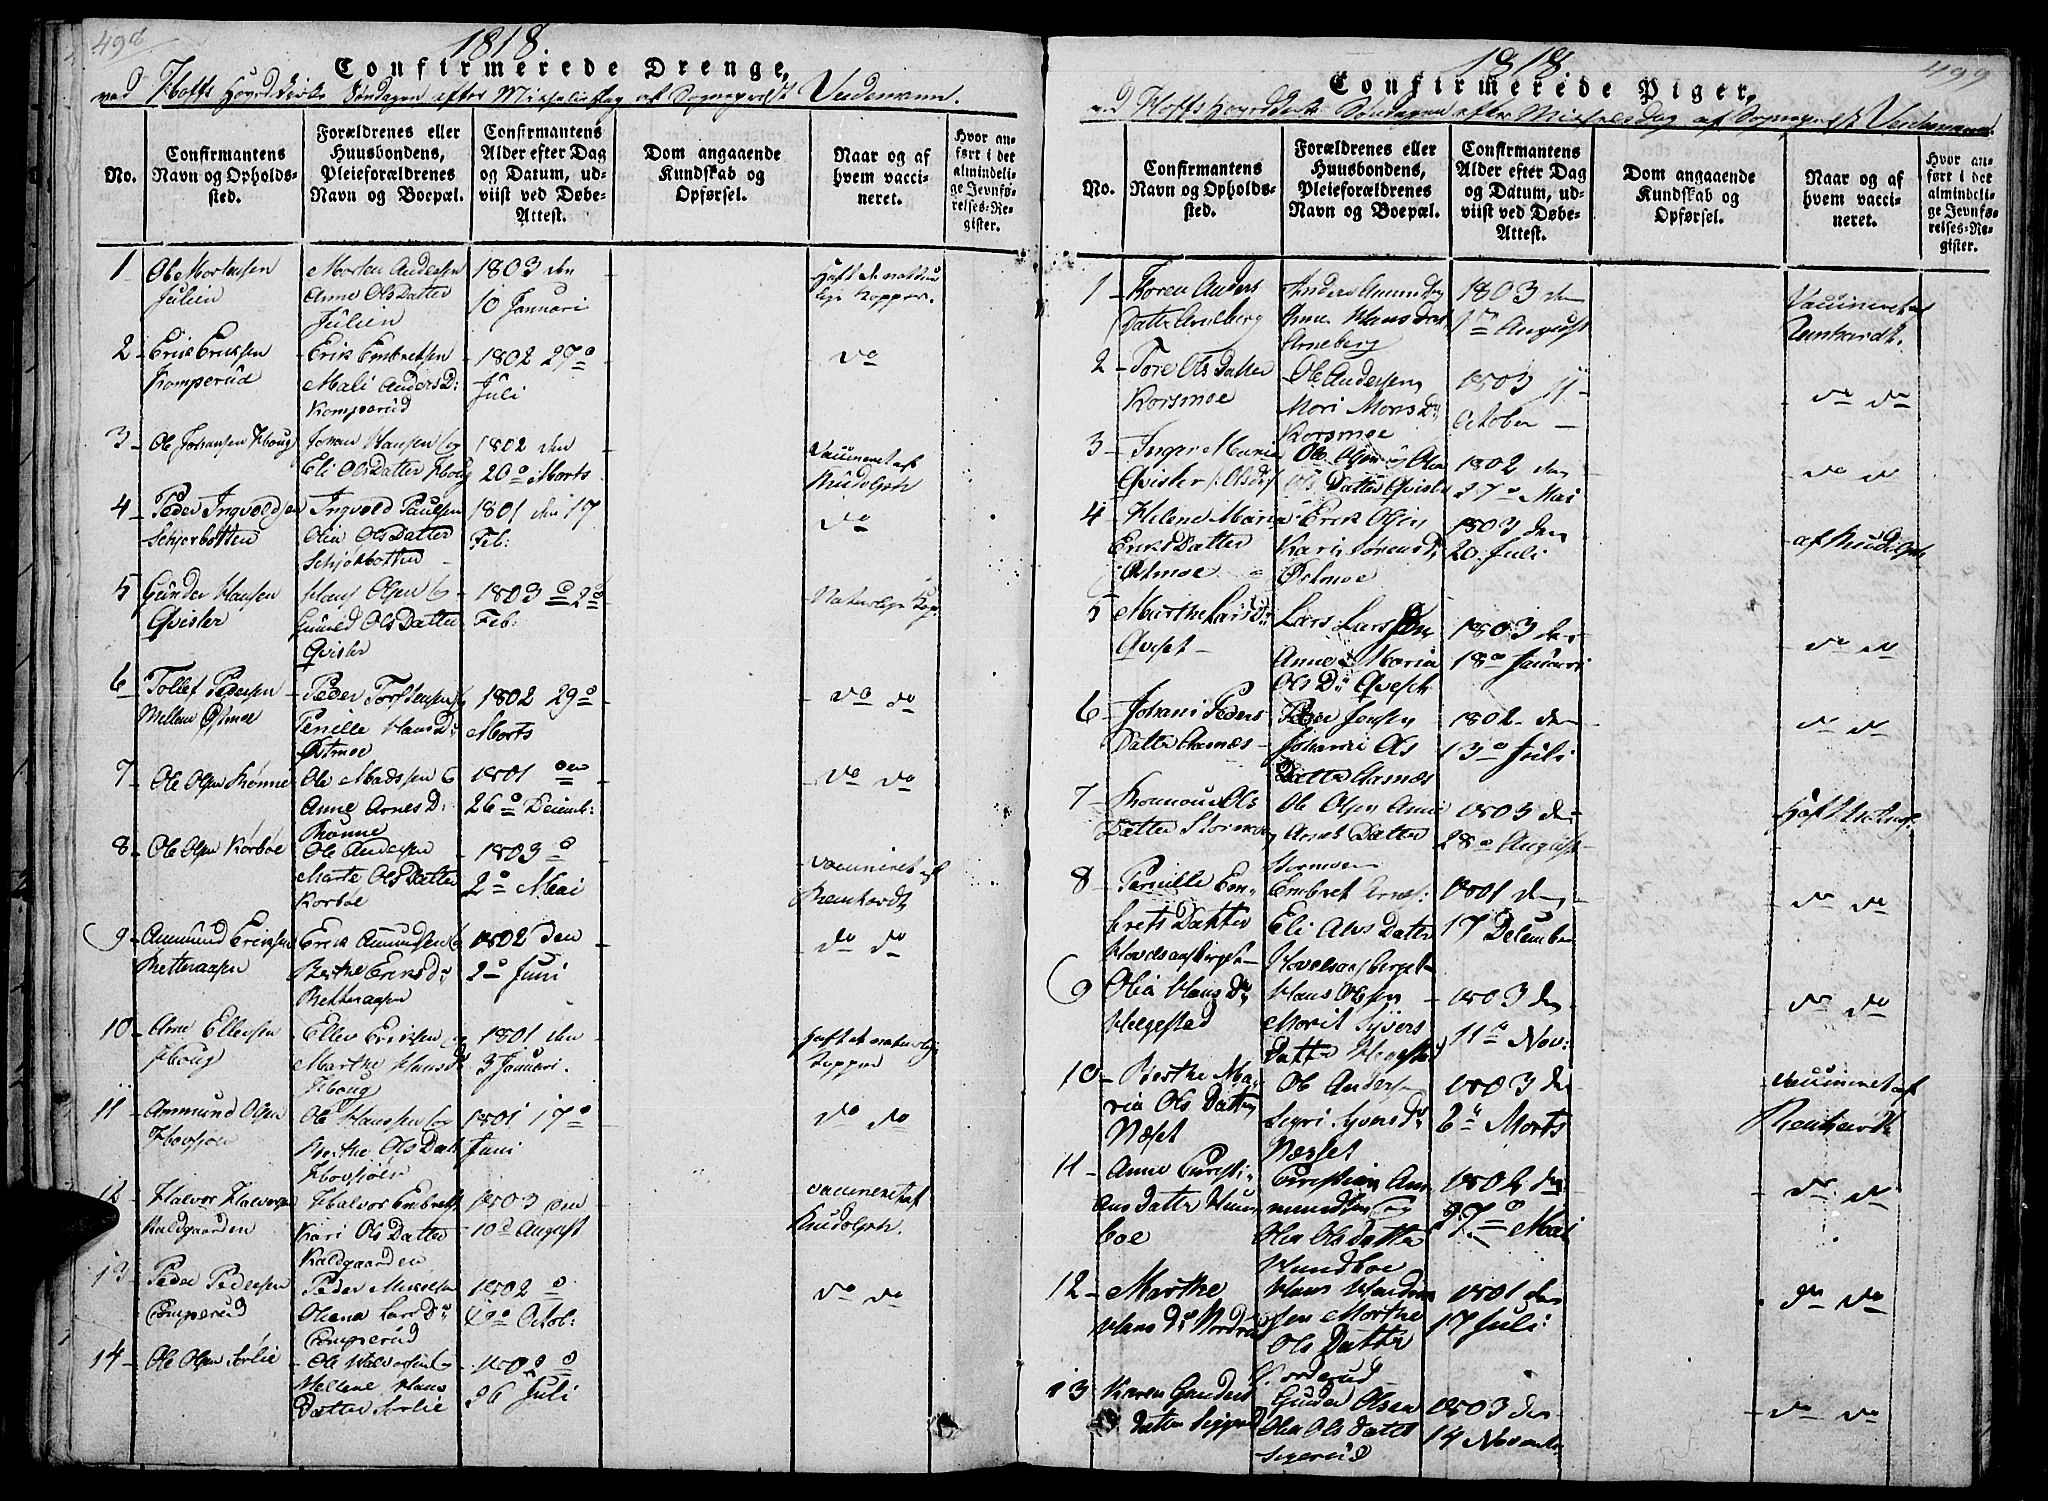 498
1818.
Confirmerede Drenge,
ved Hoffs Hovedkirke Søndagen efter Mikkelsdag af Sognepræst Veidemann.
No.
Confirmantens
Navn og Opholds-
sted.
Forældrenes eller
Huusbondens,
Pleieforældrenes
Navn og Boepæl.
Confirmantens
Alder efter Dag
og Datum, ud-
viist ved Døbe-
Attest.
Dom angaaende
Kundskab og
Opførsel.
Naar og af
hvem vacci-
neret.
Hvor an-
ført i det
almindeli-
ge Jevnfø-
relses-Re-
gister.
1
Ole Mortensen
Julien
Morten Andersen
Anne OlsDatter
Julien
1803 den
10 Januari
haft de naturlige Kopper.
2
Erik Eriksen
Komperud
Erik Embretsen
Mali Anders D:
Komperud
1802 27de
Juli
do
3
Ole Johansen Houg
Johan Hansen og
Eli OlsDatter Houg
1802 den
20de Marts
Vaccineret af
Rudolph
4
Peder Ingvoldsen
Schjerbotten
Ingvold Paulsen
Olia OlsDatter
Schjørbotten
1801 den 17
Feb:
do
5
Gunder Hansen
Qvisler
Hans Olsen og
Gunild OlsDatter
Qvisler
1803 d 2de
Feb:
Naturlige Kop.
6
Tollef Pedersen
Mellem Ostmoe
Peder Torstensen
Pernille Hans D:
Østmoe
1802 29de
Marts
do do
7
Ole Olsen Rønne
Ole Madssen og
Anne Arnes D:
Rønne
1801 den
26de Decemb:
do do
8
Ole Olsen Korboe
Ole Andersen
Marte OlsDatter
Korboe
1803 d
2de Mai
vaccineret af
Reinhardt
9
Ammund Eriksen
Retteraasen
Erik Amundsen og
Berthe Eriks D:
Retteraasen
1802 den
2de Juni
do do
10
Arne Ellefsen
Houg
Ellev Eriksen og
Marthe Hansd:
Houg
1801 den
3 Januari.
haft de naturlige
Kopper
11
Ammund Olsen
Hovsjøen
Ole Hanssen og
Berthe Ols Dat.
Hovsjøen
1801 17de
Juni
do do
12
Halvor Halvorsen
Kaldgaarden
Halvor Embrets.
Kari Ols Datter
Kaldgaarden
1803 den
10de August
vaccineret af
Rudolph.
13
Peder Pedersen
Comperud
Peder Mikkelsen
Oleana Lars D:
Comperud
1802 d
Octob:
do do
14
Ole Olsen Sorlie
Ole Halvorsen og
Mellene Hans
Datter Sorlie
1802 d
26 Juli
499
1818.
Confirmerede Piger,
ved Hoffs Hovedkirke Søndagen efter Mikkelsdag af Sognepræst Veidemann
No.
Confirmantens
Navn og Opholds-
sted.
Forældrenes eller
Huusbondens,
Pleieforældrenes
Navn og Boepæl.
Confirmantens
Alder efter Dag
og Datum, ud-
viist ved Døbe-
Attest.
Dom angaaende
Kundskab og
Opførsel.
Naar og af
hvem vacci-
neret.
Hvor an-
ført i det
almindeli-
ge Jevnfø-
relses-Re-
gister.
1
Koren Anders
Datter Arneberg
Anders
Anne Hans Dat
Arneberg
1803 den
August
Vaccineret af
Reinhardt.
2
Tore Ols Datter
Korsmoe
Ole Andersen
Mari Mons D:
Korsmoe
1803 11
October
do do
3
Inger Maria
Qvisler Olsd
Ole Olsen og Olea
Ols Datter Qvisler
1802 den
27de Mai
do do
4
Helene Maria
EriksDatter
Ostmoe
Erik Olsen
Kari Sørensd:
Østmoe
1803 den
20 Juli
af Rudolph
5
Marthe Lars D:
Qveset
Lars Larssen
Anne Maria
Ols D:
1803 den
18de Januari
do do
6
Johani Peders
Datter Aasnæs
Peder Jensen
Johanni Ols
Datter Aasnæs
1802 den
13de Juli
do do
7
Ols
Datter Stormoe
Ole Olsen
Arnes Datter
Stormoe
1803 den
28de August
Haft
8
Pernille Em-
brets Datter
Hovelsaasberget
Embret Arnes:
Eli Ols Datter
Hovelsaasberget
1801 den
17 December
do do
9
Olia Hans D:
Helgestad
Hans Olsen
Marit Syvers
Datter
1803 den
11de Nov:
do do
10
Berthe Ma-
ria Ols Datter
Næset
Ole Anders
Segri Syversd:
Næsset
1803 den
6de Marts
vaccineret af
Reinhardt
11
Anne Cristi-
ans Datter Hun
boe
Cristian Am
mundsen og
Olea OlsDatter
Hundboe
1802 den
27de Mai
do do
12
Marthe
Hans D: Nordrud
Hans
sen Marthe
Ols Datter
Norderud
1801 den
17 Juli
do do
13
Karen Gunders
Datter
Gunder Olsen
Olea Ols Datter
Sigerud
1803 den
14 November
do do